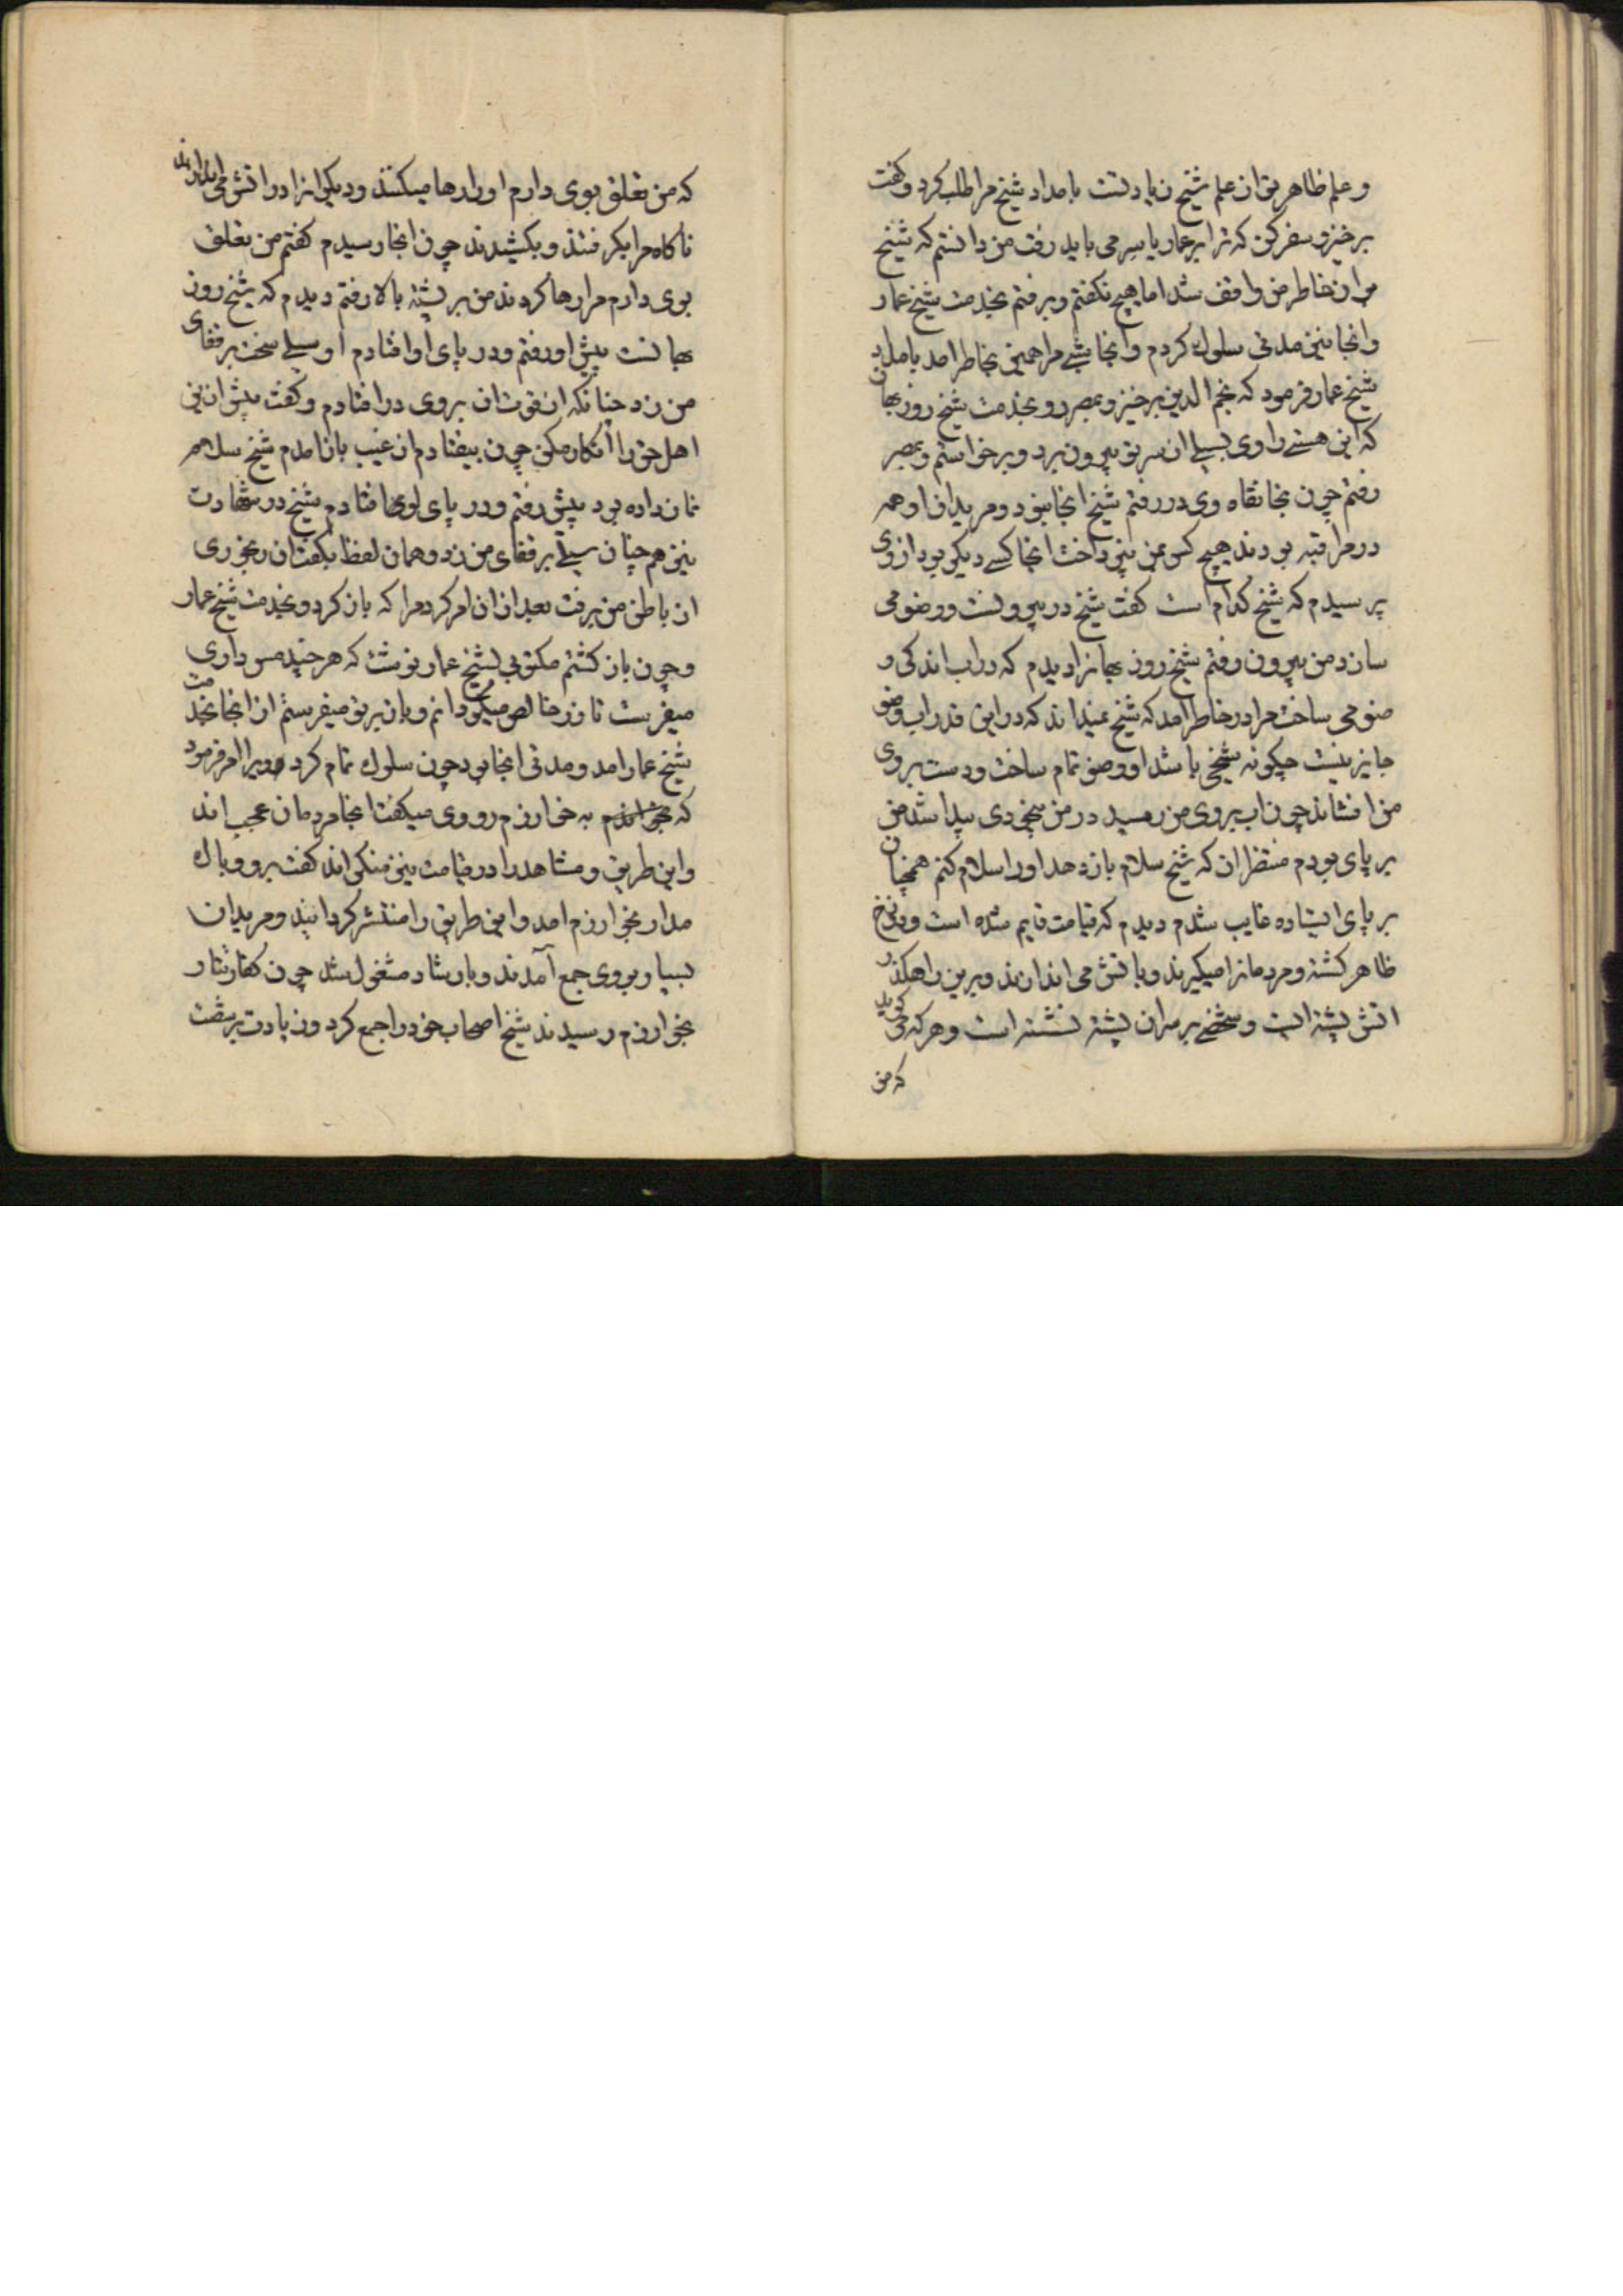 و علم ظاهر تو از علم شیخ زیادتست بامداد شیخ مرا طلب کرد و کفت
برخیز و سفر کن که ترا بر عمار یاسر می باید رفت من دانستم که شیخ
بر ان خاطر من واقف شد اما هیچ نکفتم و برفتم بخدمت شیخ عمار
وانجا نیز مدتی سلوک کردم وانجا شبی مرا همین بخاطر امد بامداد
شیخ عمار فرمود که نجم الدین برخیز و بمصر رو بخدمت شیخ روزبهان
که این هستی را وی بسیلی از سر تو بیرون برد و برخواستم و بمصر
رفتم چون بخانقاه وی در رفتم شیخ انجا نبود و مریدان او همه
در مراقبه بودند هیچ کس بمن نپرداخت انجا کسی دیکر بود ازوی
پرسیدم که شیخ کدام است کفت شیخ در بیرونست و وضو می
سازد من بیرون رفتم شیخ روزبهانرا دیدم که در اب اندکی و
ضو می ساخت مرا در خاطر امد که شیخ نمیداند که در این قدر اب وضو
جایز نیست چکونه شیخی باشد او وضو تمام ساخت و دست بر روی
من افشاند چون اب بروی من رسید در من بیخودی پیدا شد من
بر پای بودم منتظر ان که شیخ سلام باز دهد او را سلام کنم همچنان
بر پای ایستاده غایب شدم دیدم که قیامت قایم شده است و دوزخ
ظاهر کشته و مردمانرا میکیرند و باتش می اندازند و برین راهکذر
اتش پشته ایست و شخصی بر سر ان پشته نشسته است و هر که می کوید
که من
که من تعلق بوی دارم او را رها میکنند و دیکرانرا در اتش می اندازند
ناکاه مرا بکرفتند و بکشیدند چون انجا رسیدم کفتم من تعلق
بوی دارم مرا رها کردند من بر پشته بالا رفتم دیدم که شیخ روز
بهانست پیش او رفتم و در پای او افتادم او سیلی سخت بر قفای
من زد چنانکه از قوت ان بروی در افتادم و کفت پیش ازین
اهل حق را انکار مکن چون بیفتادم از غیب باز امدم شیخ سلام
نماز داده بود پیش رفتم و در پای او افتادم شیخ در شهادت
نیز هم چنان سیلی بر قفای من زد و همان لفظ بکفت ان رنجوری
از باطن من برفت بعد از ان امر کرد مرا که باز کرد و بخدمت شیخ عمار
و چون باز کشتم مکتوبی بشیخ عمار نوشت که هر چند مس داری
میفرست تا زر خالص میکردانم و باز بر تو میفرستم از انجا بخدمت
شیخ عمار امد و مدتی انجا بود چون سلوک تمام کرد ویرا امر فرمود
که بخوارزم رو وی میکفت انجا مردمان عجب اند
و این طریق و مشاهده را در قیامت نیز منکر اند کفت برو و باک
مدار بخوارزم امد و این طریق را منتشر کردانید و مریدان
بسیار بر وی جمع آمدند و بارشاد مشغول شد چون کفار تتار
بخوارزم رسیدند شیخ اصحاب خود را جمع کرد و زیادت بر شصت